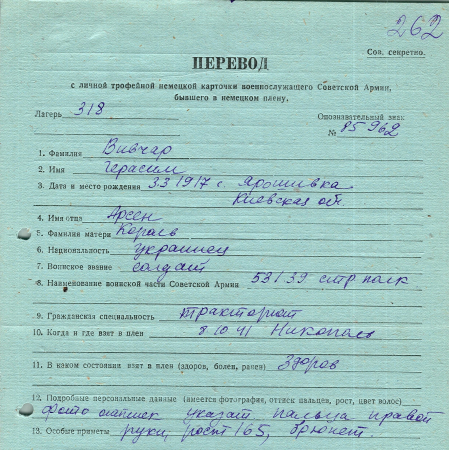 262
Сов. секретно.
ПЕРЕВОД
с личной трофейной немецкой карточки военнослужащего Советской Армии,
бывшего в немецком плену.
Лагерь 318
Опознавательный знак
№ 85962
1. Фамилия Вивчар
2. Имя Герасим
3. Дата и место рождения 3.3 1917 с. Ярошивка
Киевская об.
4. Имя отца Арсен
5. Фамилия матери Короев
6. Национальность украинец
7. Воинское звание солдат
8. Наименование воинской части Советской Армии 531 39 стр полк
9. Гражданская специальность тракторист
10. Когда и где взят в плен 8 10 41 Никополь
11. В каком состоянии взят в плен (здоров, болен, ранен) Здоров
12. Подробные персональные данные (имеется фотография, оттиск пальцев, рост, цвет волос)
Фото указат. пальца правой
13. Особые приметы руки, рост 165, брюнет.